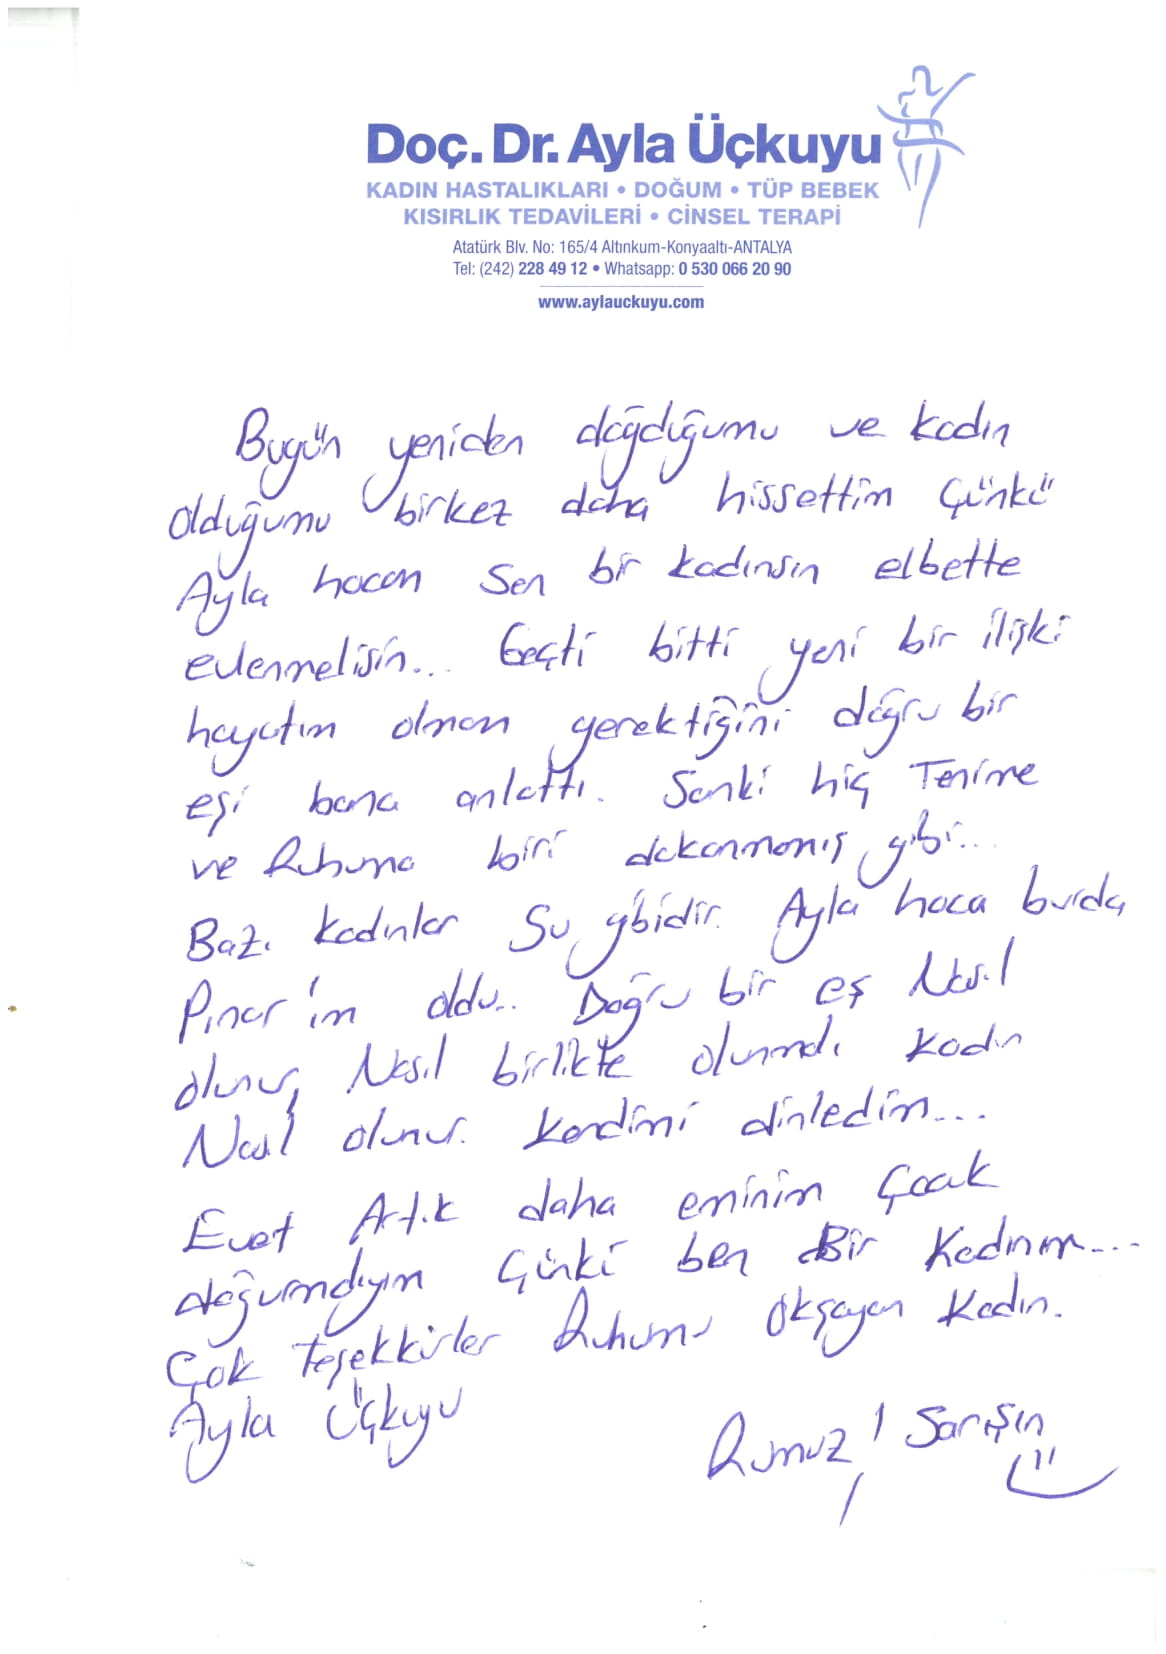 Doç. Dr. Ayla Üçkuyu
KADIN HASTALIKLARI • DOĞUM • TÜP BEBEK
KISIRLIK TEDAVİLERİ • CİNSEL TERAPİ
Atatürk Blv. No: 165/4 Altınkum-Konyaaltı-ANTALYA
Tel: (242) 228 49 12 • Whatsapp: 0 530 066 20 90
www.aylauckuyu.com
Bugün yeniden doğduğumu ve kadın
olduğumu birkez daha hissettim Çünkü
Ayla hocam Sen bir kadınsın elbette
evlenmelisin... Geçti bitti yeni bir ilişki
hayatım olması gerektiğini doğru bir
eşi bana anlattı. Sanki hiç Tenime
ve Ruhuma biri dokanmamış gibi...
Bazı kadınlar Su gibidir. Ayla hoca burda
Pınar'ım oldu.. Doğru bir eş Nasıl
olunur, Nasıl birlikte olunmalı kadın
Nasıl olunur. Kendimi dinledim...
Evet Artık daha eminim Çocuk
doğurmalıyım Çünki ben Bir Kadınım...
Çok teşekkürler Ruhumu Okşayan Kadın.
Ayla Üçkuyu
Rumuz! Sarışın